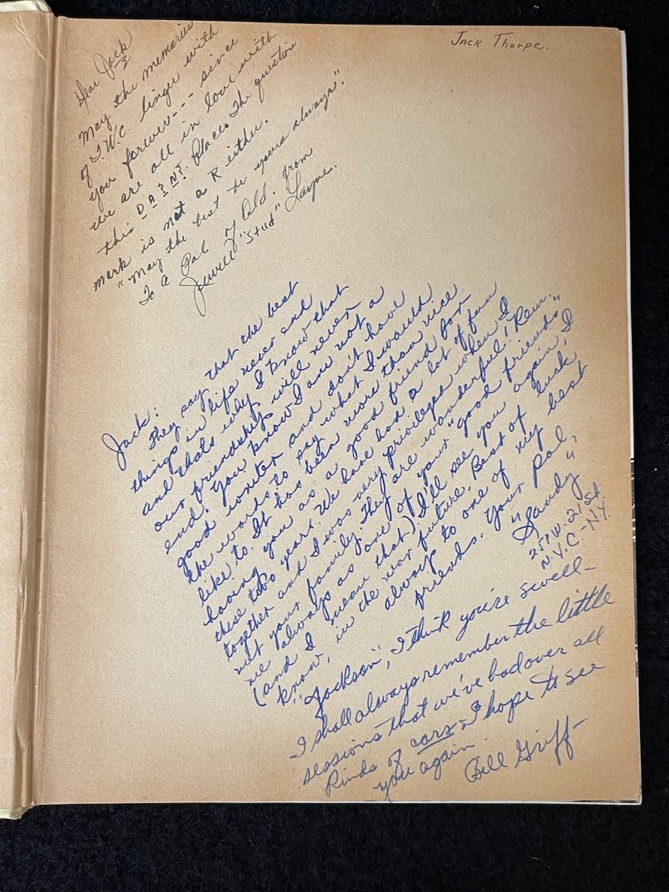 Jack Thorpe.
Dear Jack
May the memories
of T.W.C. linger with
you forever --- since
we are all in love with
this D A ? N ? Place. The question
mark is not a R either.
"May the best be yours always".
To a Pal of Old. from
Jewell "Stud" Layne.
Jack:
They say that the best
things in life never end
and thats why I know that
our friendship will never
end. You know I am not a
good writer and don't have
the words to say what I would
like to. It has been more than nice
having you as a good friend for
these two years. We have had a lot of fun
together and I was very privileged when I
met your family. They are wonderful! Rem.
me always as one of your "good friends"
(and I mean that) I'll see you again, I
know, in the near future. Best of luck
always to one of my best
friends. Your pal,
"Sandy"
257 W. 21 St.
N.Y.C. - N.Y.
"Jackson", I think you're swell-
I shall always remember the little
sessions that we've had over all
kinds of cars - I hope to see
you again
Bill Griff-